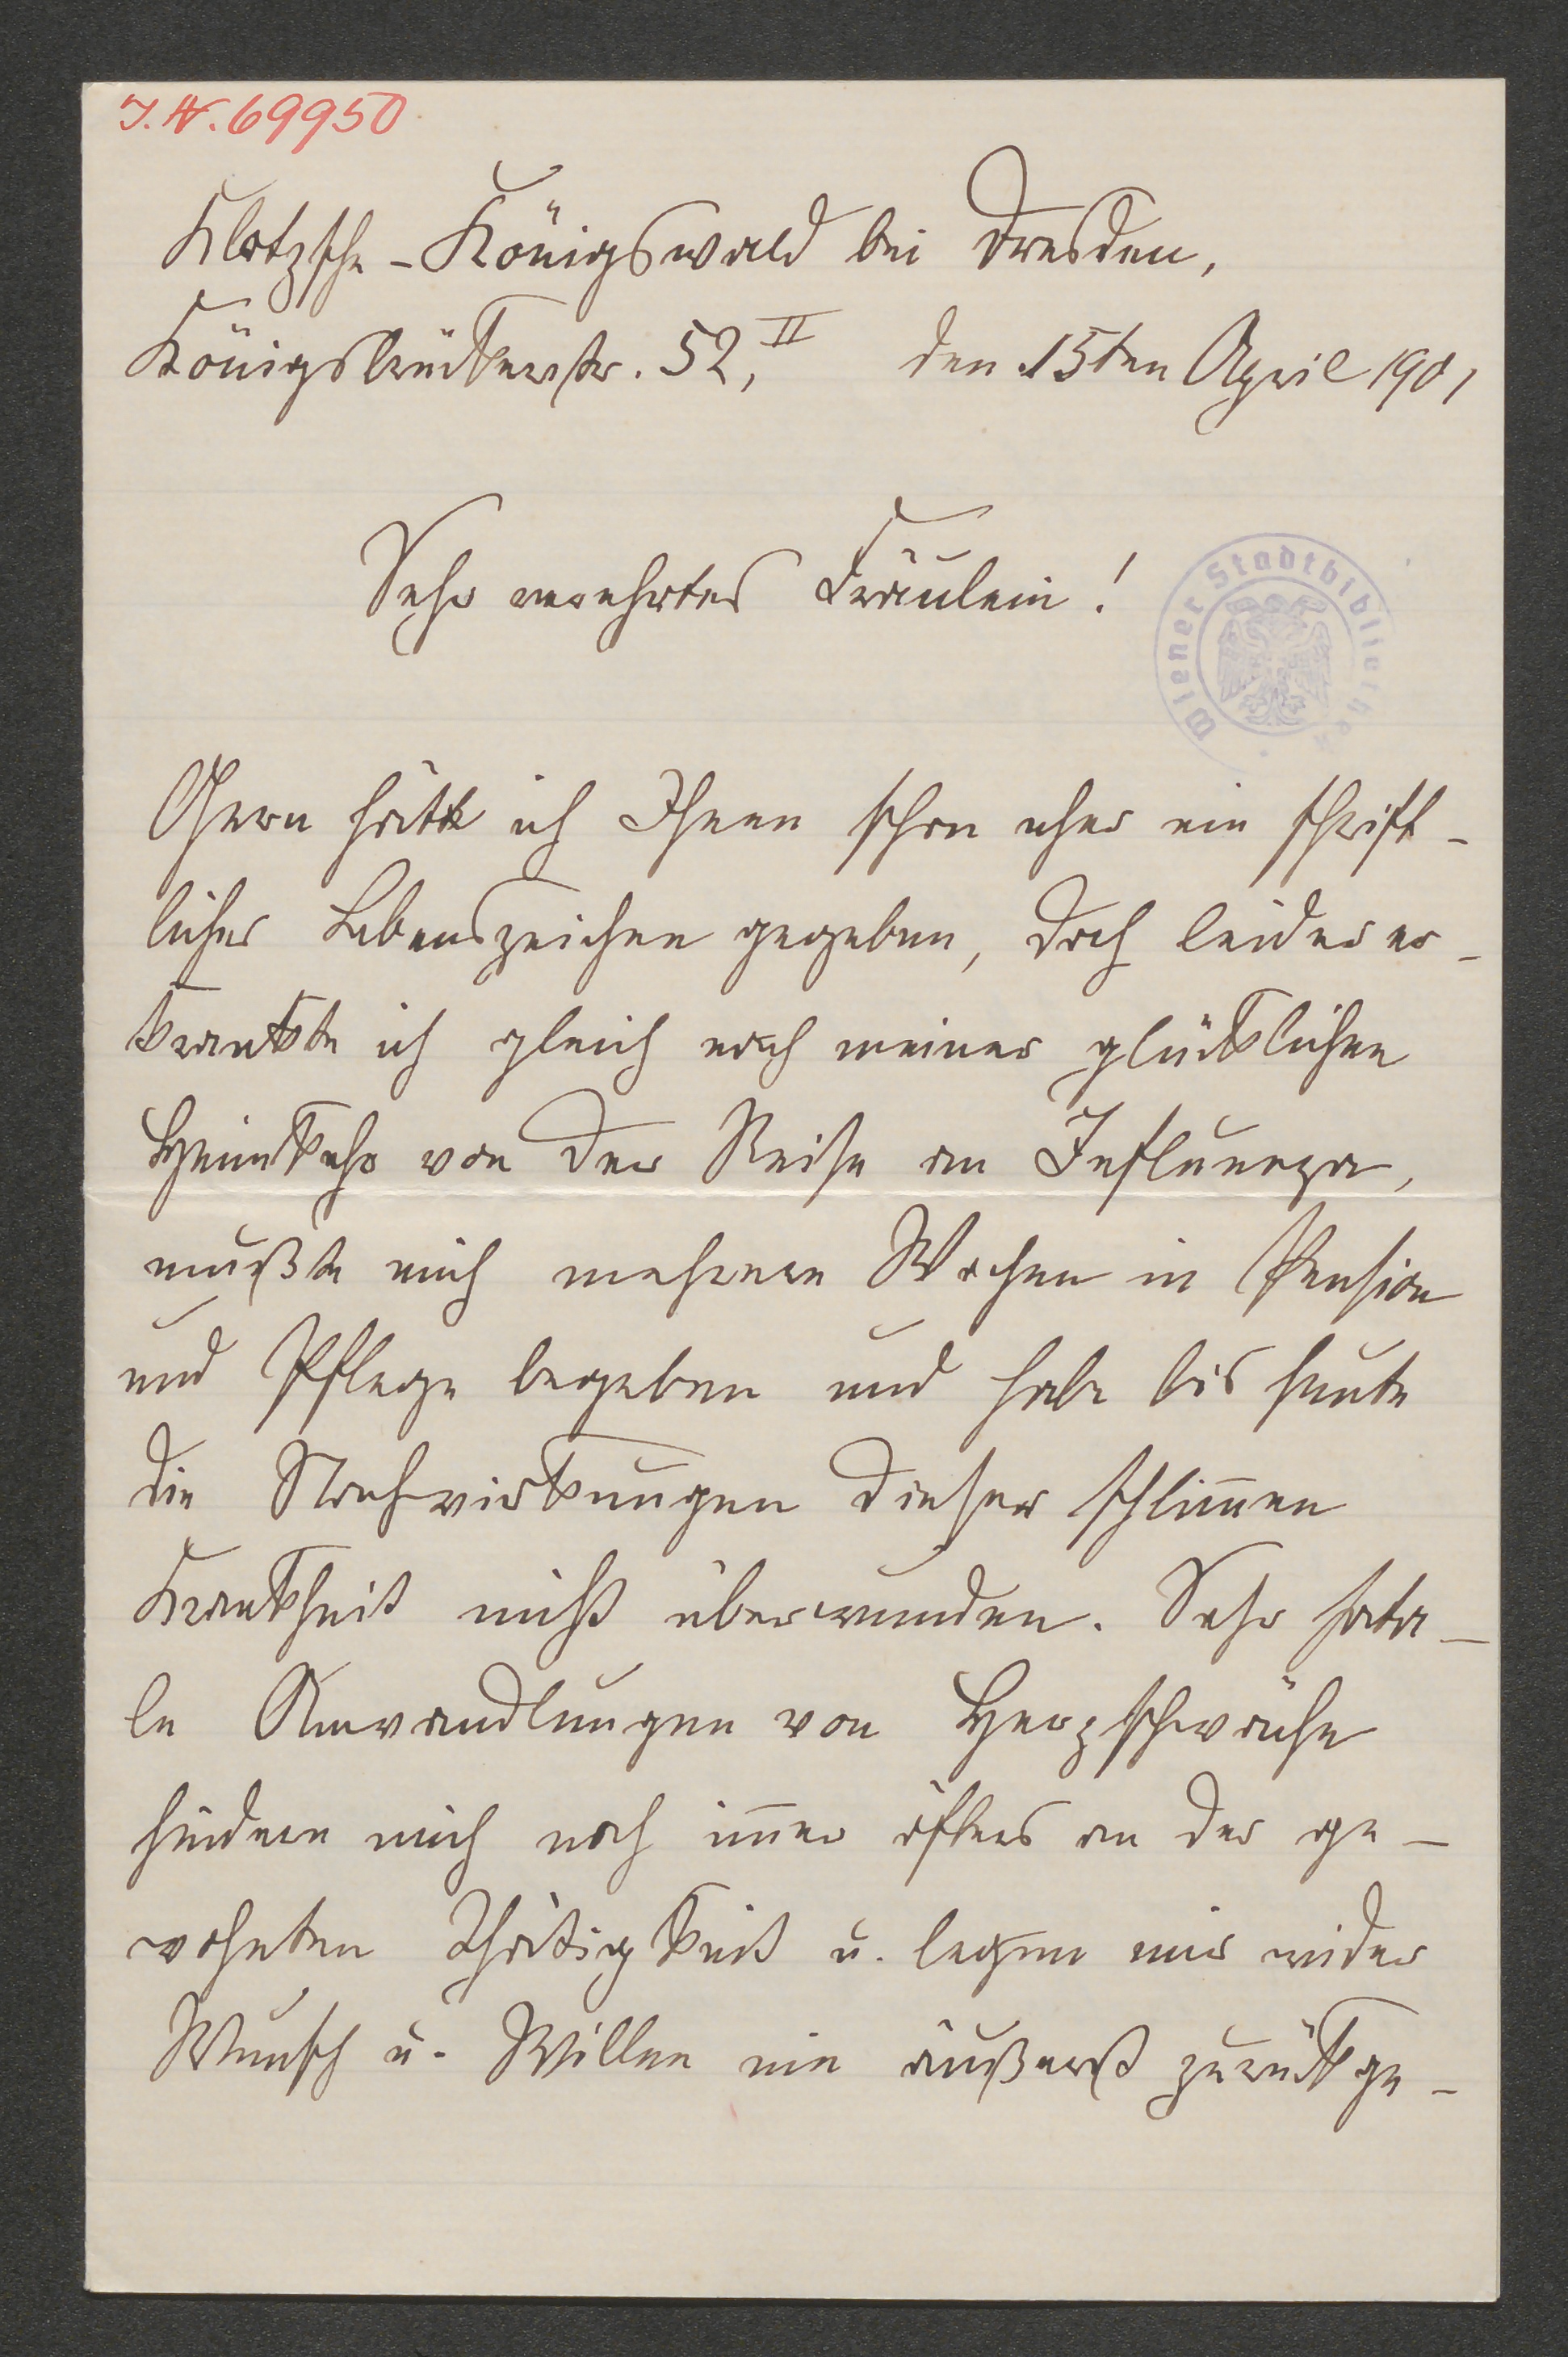 I. N. 69950
Klotzsche-Königswald bei Dresden,
Königsbrückerstr. 52, II den 15ten April 1901
Sehr verehrtes Fräulein!
Wiener Stadtbibliothek
Gern hätte ich Ihnen schon eher ein schrift-
liches Lebenszeichen gegeben, doch leider er-
krankte ich gleich nach meiner glücklichen
Heimkehr von der Reise an Influenza,
mußte mich mehrere Wochen in Pension
und Pflege begeben und habe bis heute
die Nachwirkungen dieser schlim̅en
Krankheit nicht überwunden. Sehr fata-
le Anwandlungen von Herzschwäche
hindern mich noch im̅er öfters an der ge-
wohnten Thätigkeit u. legen mir wider
Wunsch u. Willen ein äußerst zurückge-